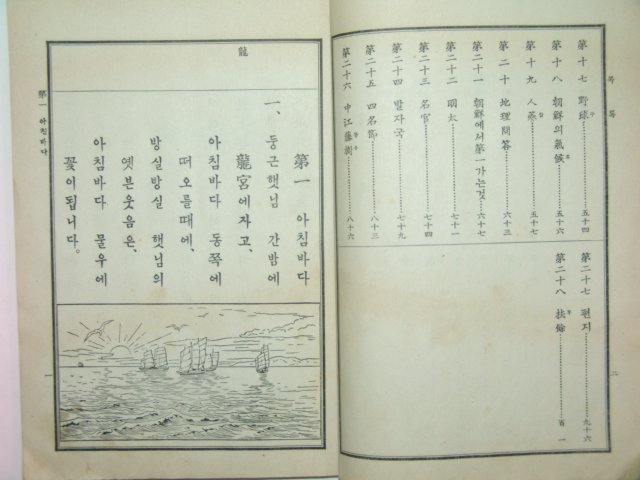 목록
第十七 野球 五十四
第十八 朝鮮의氣候 五十六
第十九 人蔘 五十七
第二十 地理問答 六十三
第二十一 朝鮮에서第一가는것 六十七
第二十二 明太 七十一
第二十三 名官 七十四
第二十四 발자국 七十九
第二十五 四名節 八十三
第二十六 申江 八十六
第二十七 편지 九十六
第二十八 扶餘 百一
二
龍
第一 아침바다
一、둥근햇님 간밤에
龍宮에자고、
아침바다 동쪽에
떠오를때에、
방실방실 햇님의
옛븐웃음은、
아침바다 물우에
꽃이됩니다。
第一 아침바다
一